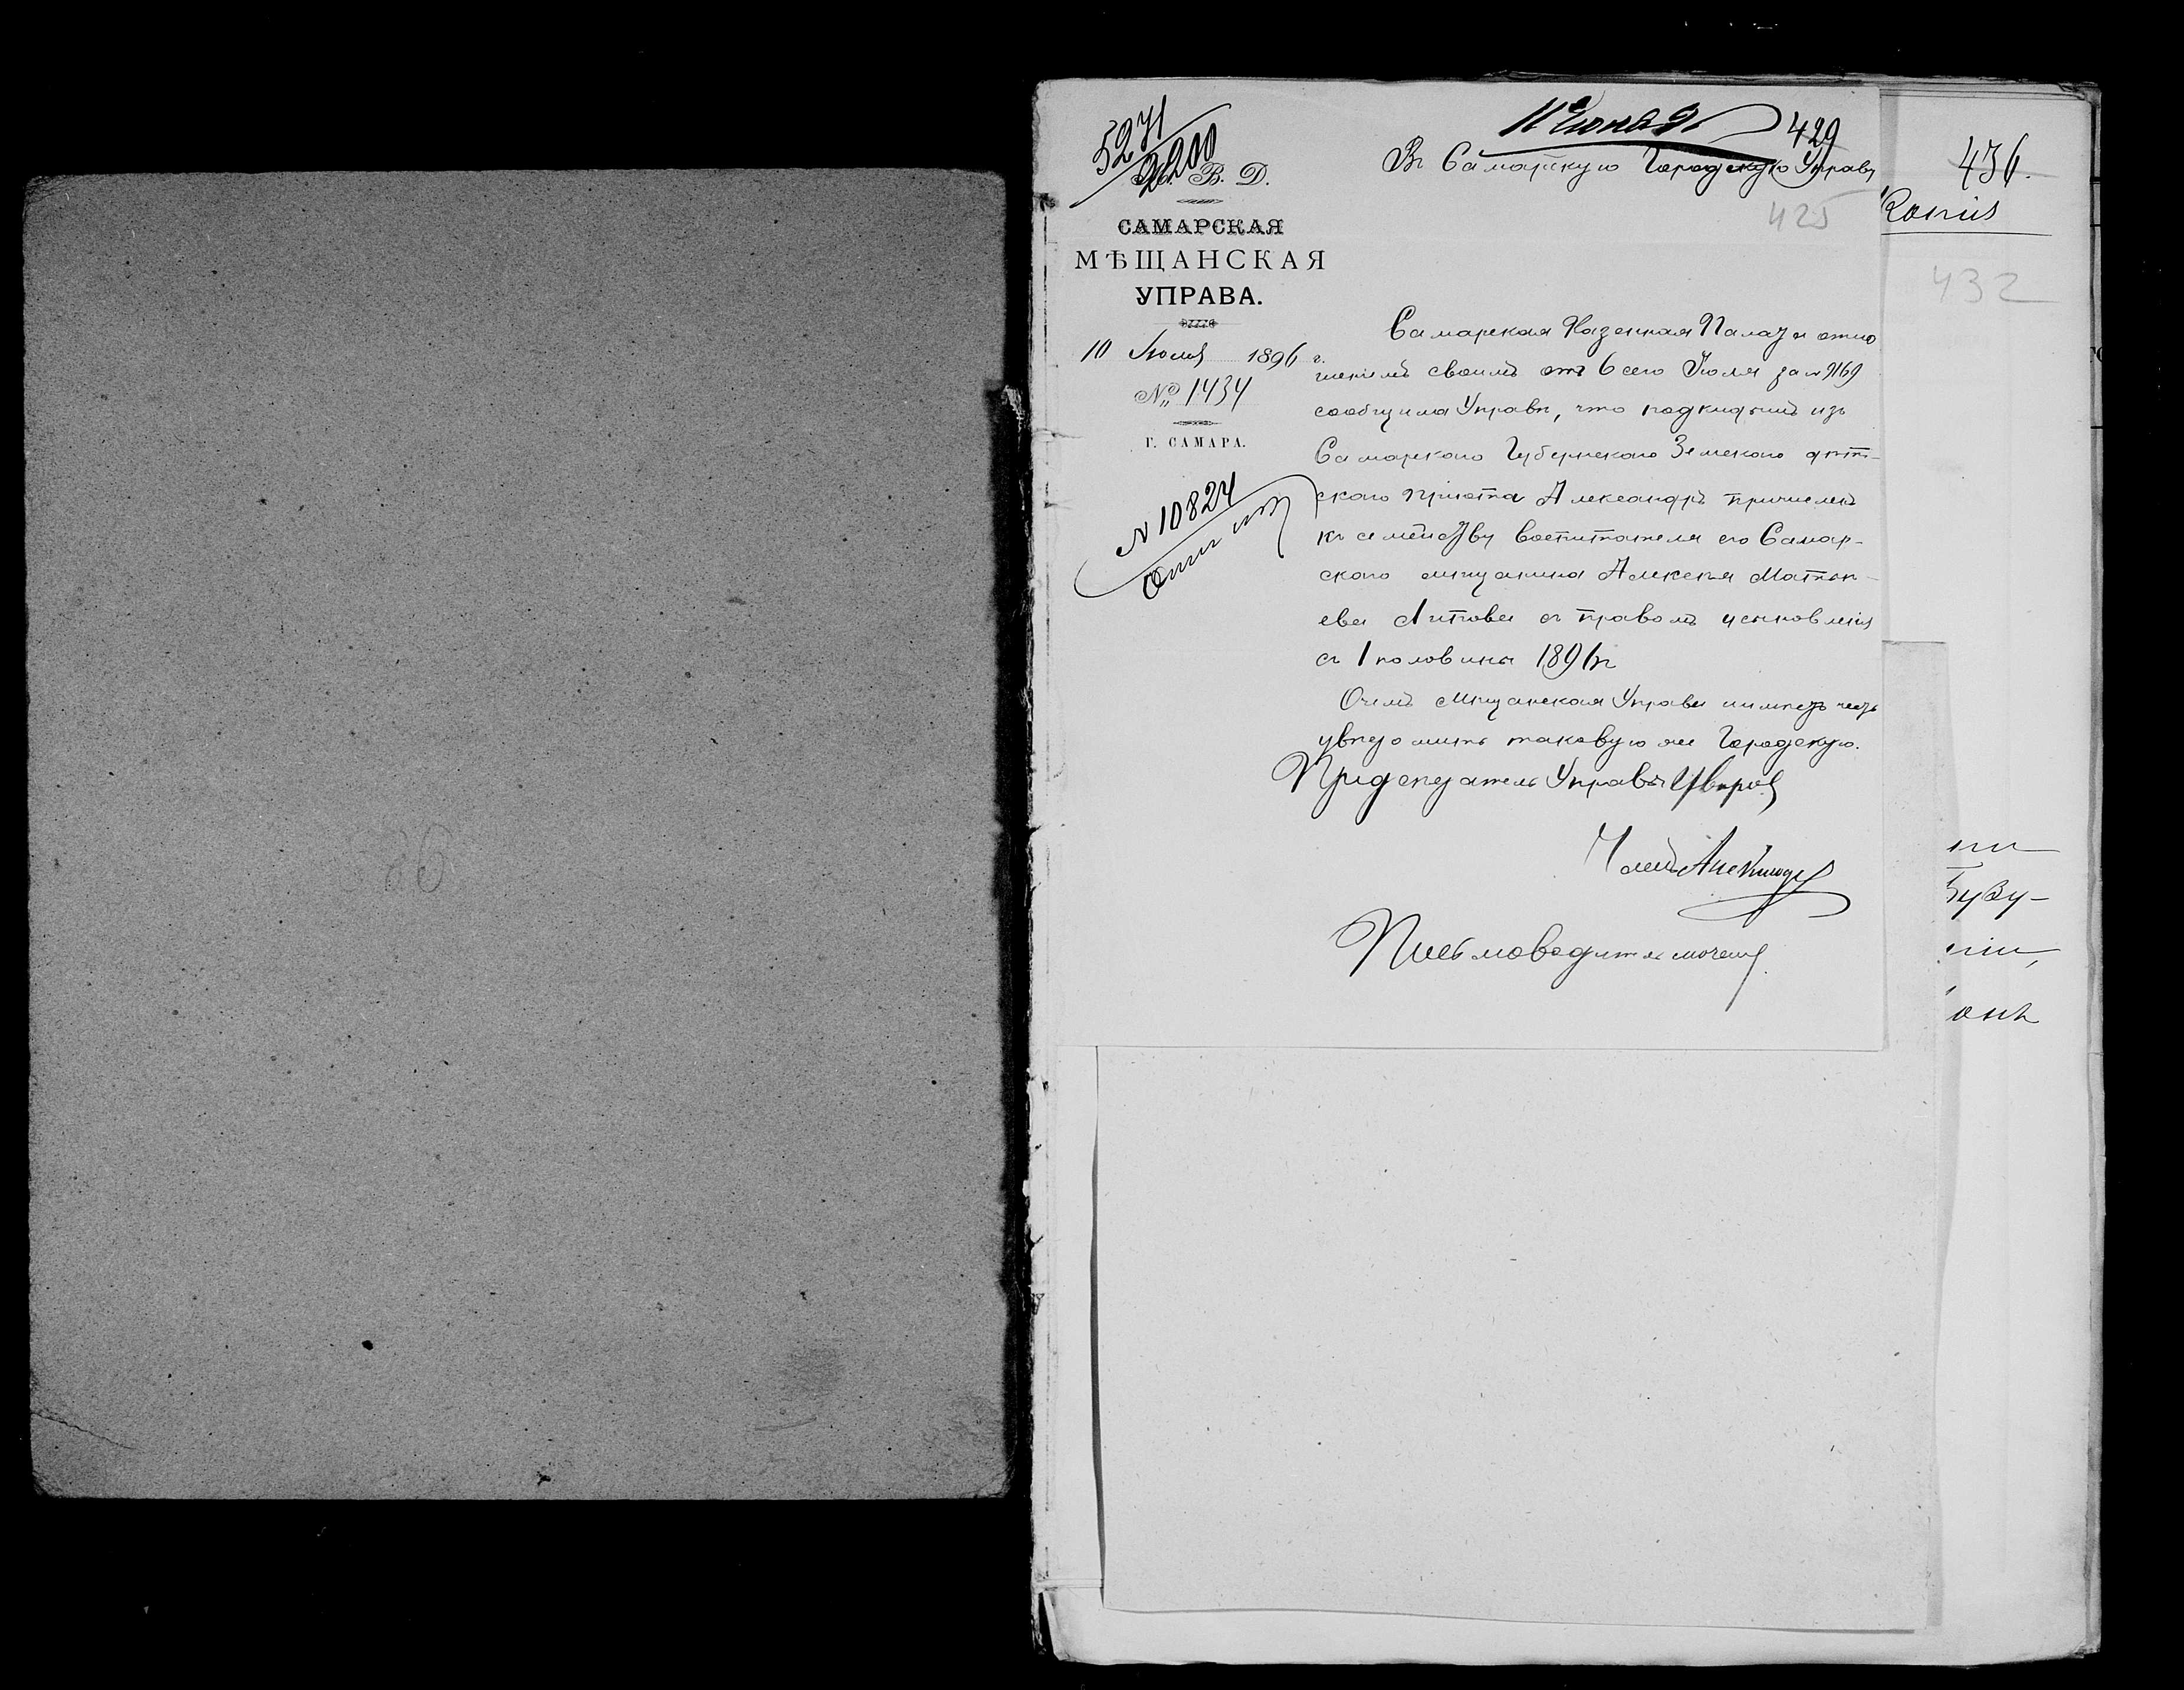 5271
9200
М. В. Д.
САМАРСКАЯ
МѢЩАНСКАЯ
УПРАВА.
10 Іюля 1896 г.
№ 1434
Г. САМАРА.
N 10824
429
Въ Самарскую Городскую Управу
425
Самарская Казенная Палата отно
шеніемъ своимъ отъ 6 сего Іюля за № 9169
сообщила Управѣ, что подкидышъ изъ
Самарскаго Губернскаго Земскаго дѣт-
скаго пріюта Александръ причисленъ
къ семейству воспитателя его Самар-
скаго мѣщанина Алексѣя Матвѣ-
ева с правомъ усыновленія
съ 1 половины 1896 г
О чемъ Мѣщанская Управа имѣетъ честь
увѣдомить таковую же Городскую.
Предсѣдатель Управы
Членъ
Письмоводитель
436.
Копія
432
Бузу-